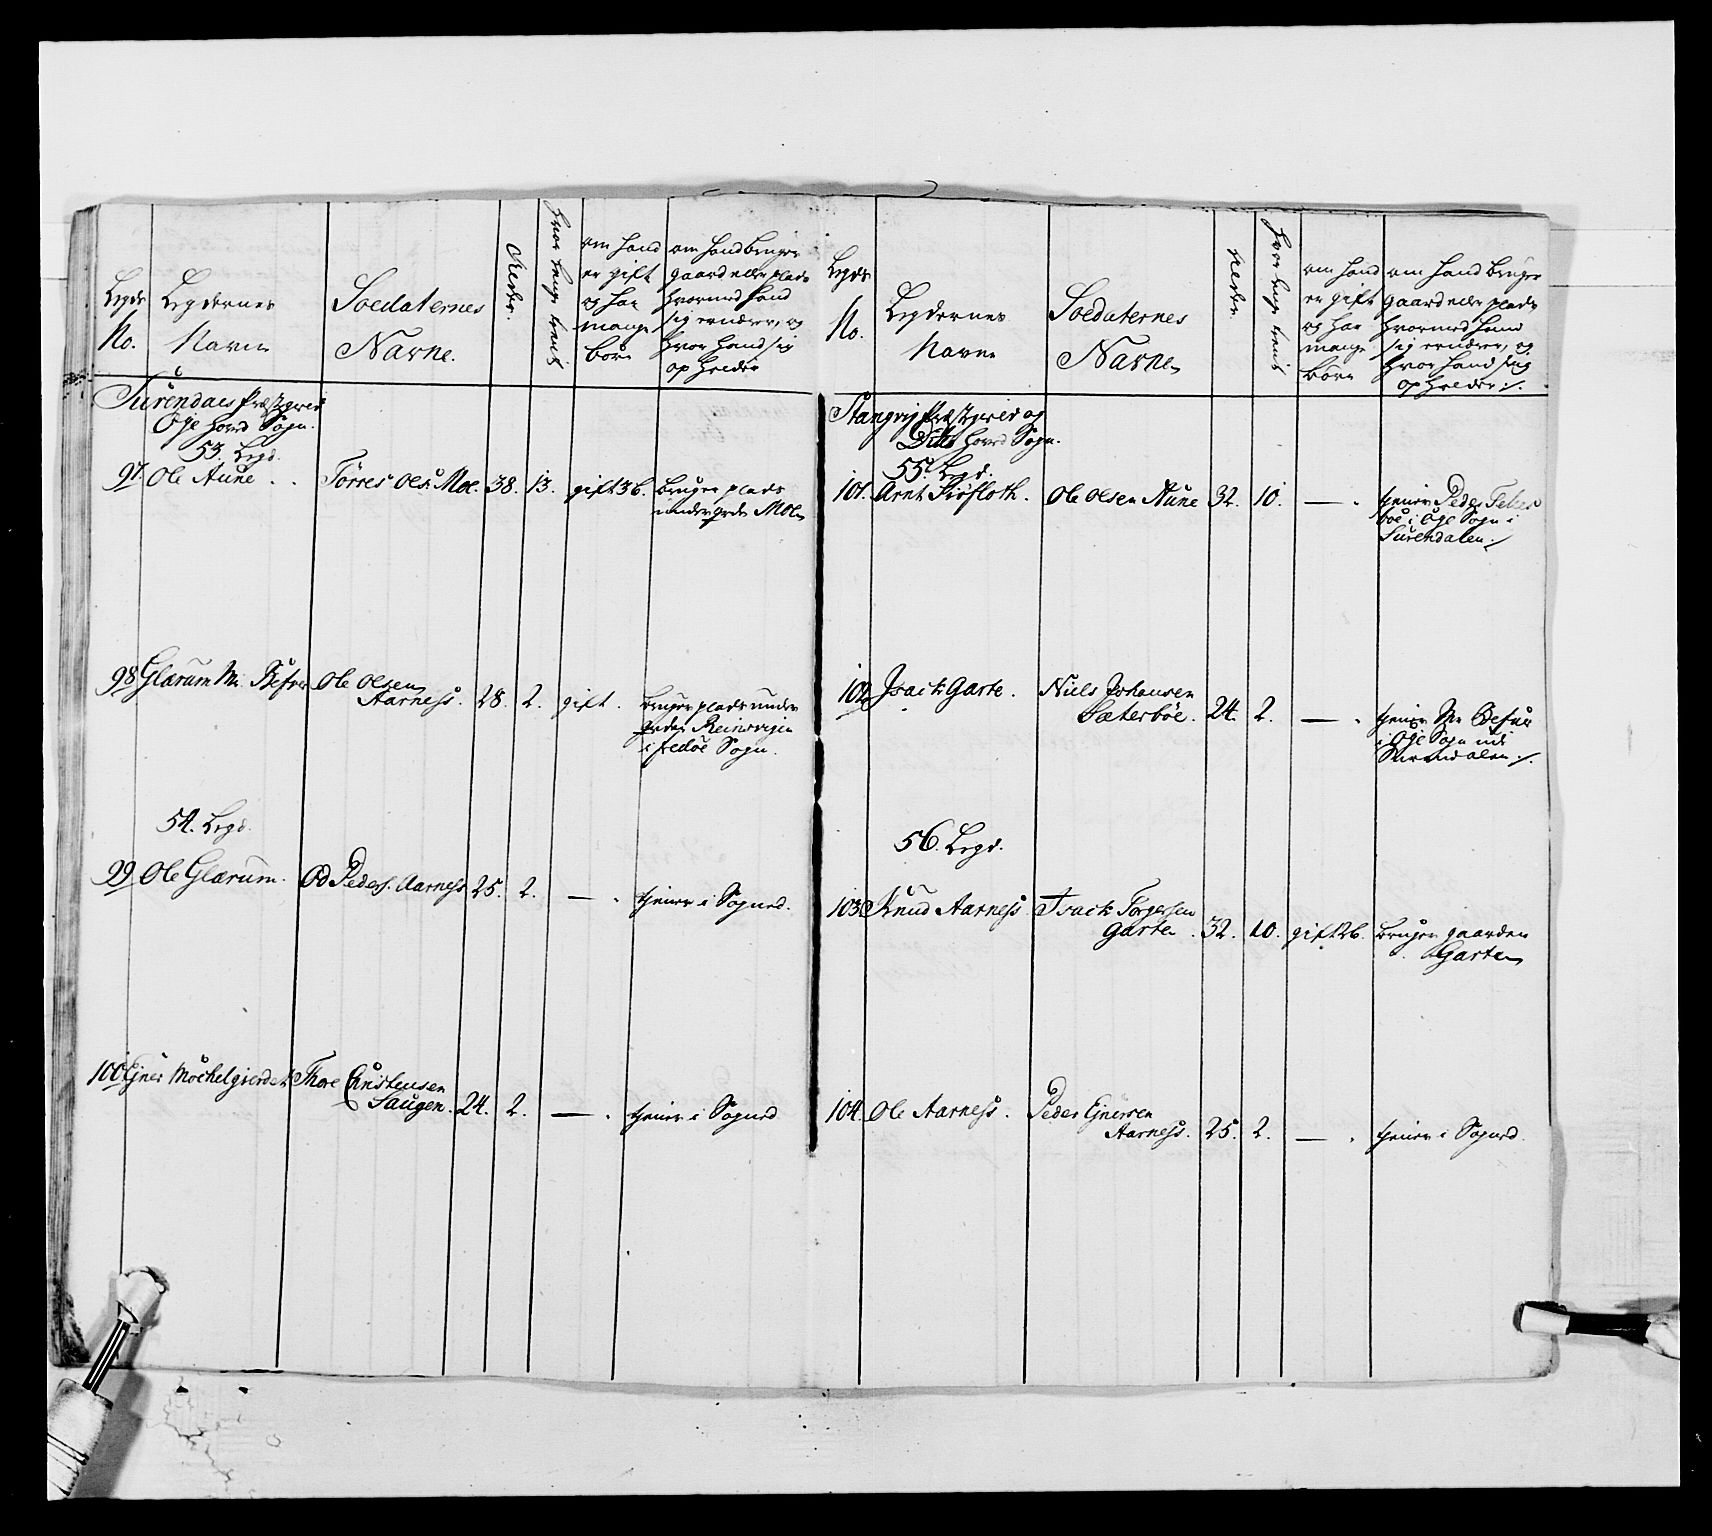 Legds
No.
Legdernes
Navne
Soldaternes
Navne.
Alder.
hvor lenge tient
om hand
er gift
og har
mange
børn
om hand bruger
gaard eller plads
hvormed hand
sig ernærer, og
hvor hand sig
opholder
Surendals Præstgield
Øye hoved Sogn.
53. Legd.
97. Ole Aune . . Tørres Ols: Moe. 38. 13. gift 3b. bruger plads
under grds Moen
98 Glærum Mr. Befver Ole Olsen
Aarness. 28. 2. gift. bruger plads under
grds Reinsvigen
i Aedøe Sogn.
54. Legd.
99 Ole Glærum. Od Peders. Aarness 25. 2. — . tjener i Sogned.
100 Ejner Mochelgierdet Thore Christensen
Saugen. 24. 2. — . tjener i Sogned
Legds
No.
Legdernes
Navne
Soldaternes
Navne
Alder
hvor lenge tient
om hand
er gift
og har
mange
børn
om hand bruger
gaard eller plads
hvormed hand
sig ernærer, og
hvor hand sig
opholder ./.
Stangvig Præstgield og
Ditto hoved Sogn.
55. Legd.
101. Arnt Fiøfloth. Ole Olsen Aune 32. 10. — . tjener Peder
boe i Øye Sogn i
Surendalen ./
102 Isach Garte. Niels Johansen
Sæterbøe. 24. 2. — . tjener Mr Befver
i Øye Sogn udi
Surendalen ./.
56. Legd.
103 Knud Aarness Isach Torgersen
Garte. 32. 10. gift 2b. bruger gaarden
Garten
104. Ole Aarness. Peder Ejnersen
Aarness. 25. 2. — . tjener i Sogned.